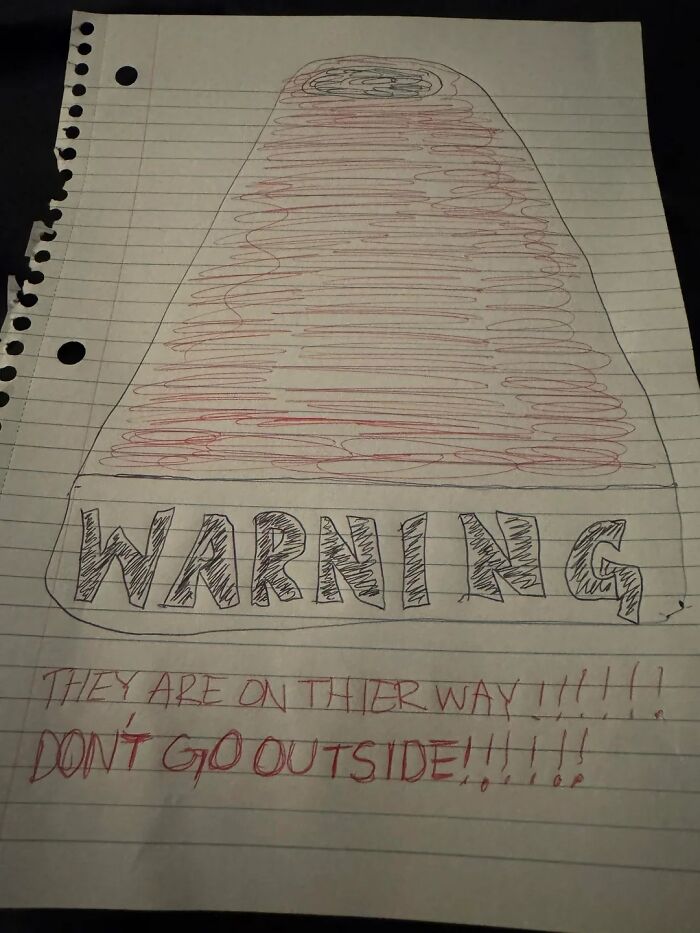 WARNING
THEY ARE ON THIER WAY !!!!!!!
DON'T GO OUTSIDE!!!!!!!